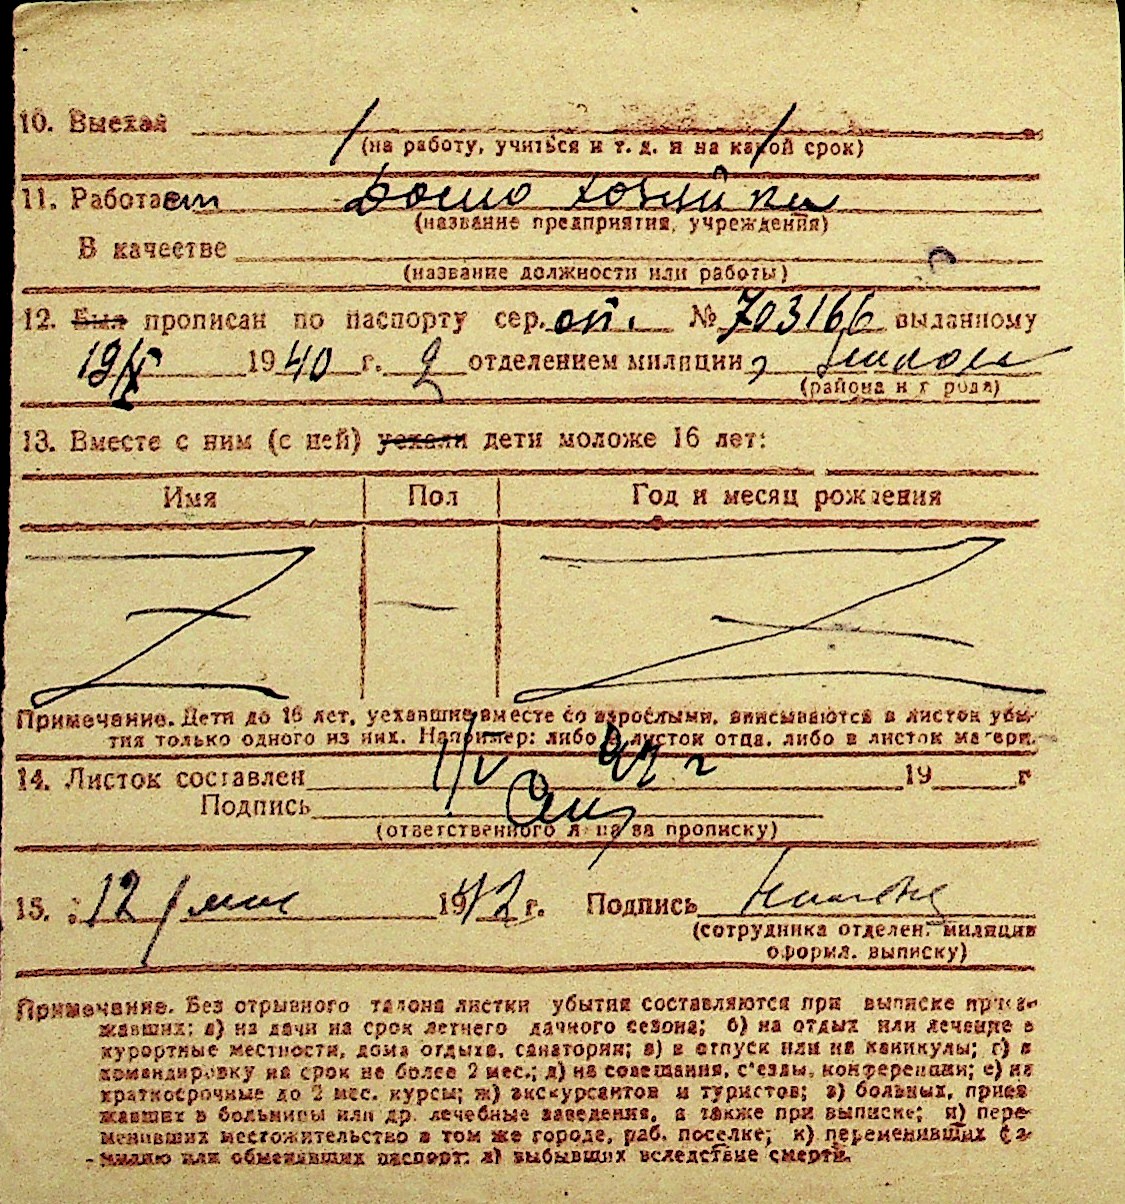 10. Выехал
(на работу, учиться и т. д. и на какой срок)
11. Работает домо хозяйка
(название предприятия, учреждения)
В качестве
(название должности или работы)
12. Был прописан по паспорту сер. № 703166 выданному
19/X 1940 г. 2 отделением милиции
(района и города)
13. Вместе с ним (с ней) уехали дети моложе 16 лет:
Имя Пол Год и месяц рождения
Примечание. Дети до 16 лет, уехавшие вместе со взрослыми, вписываются в листок убы-
тия только одного из них. Например: либо в листок отца, либо в листок матери.
14. Листок составлен 11/V 42 г 19 г
Подпись
(ответственного лица за прописку)
15. 12 / мая 1942 г. Подпись
(сотрудника отделен. милиции
оформл. выписку)
Примечание. Без отрывного талона листки убытия составляются при выписке приез-
жавших: а) на дачи на срок летнего дачного сезона; б) на отдых или лечение в
курортные местности, дома отдыха, санатории; в) в отпуск или на каникулы; г) в
командировку на срок не более 2 мес.; д) на совещания, с'езды, конференции; е) на
краткосрочные до 2 мес. курсы; ж) экскурсантов и туристов; з) больных, приез-
жавших в больницы или др. лечебные заведения, а также при выписке; и) пере-
менивших местожительство в том же городе, раб. поселке; к) переменивших фа-
милию или обменявших паспорт; л) выбывших вследствие смерти.